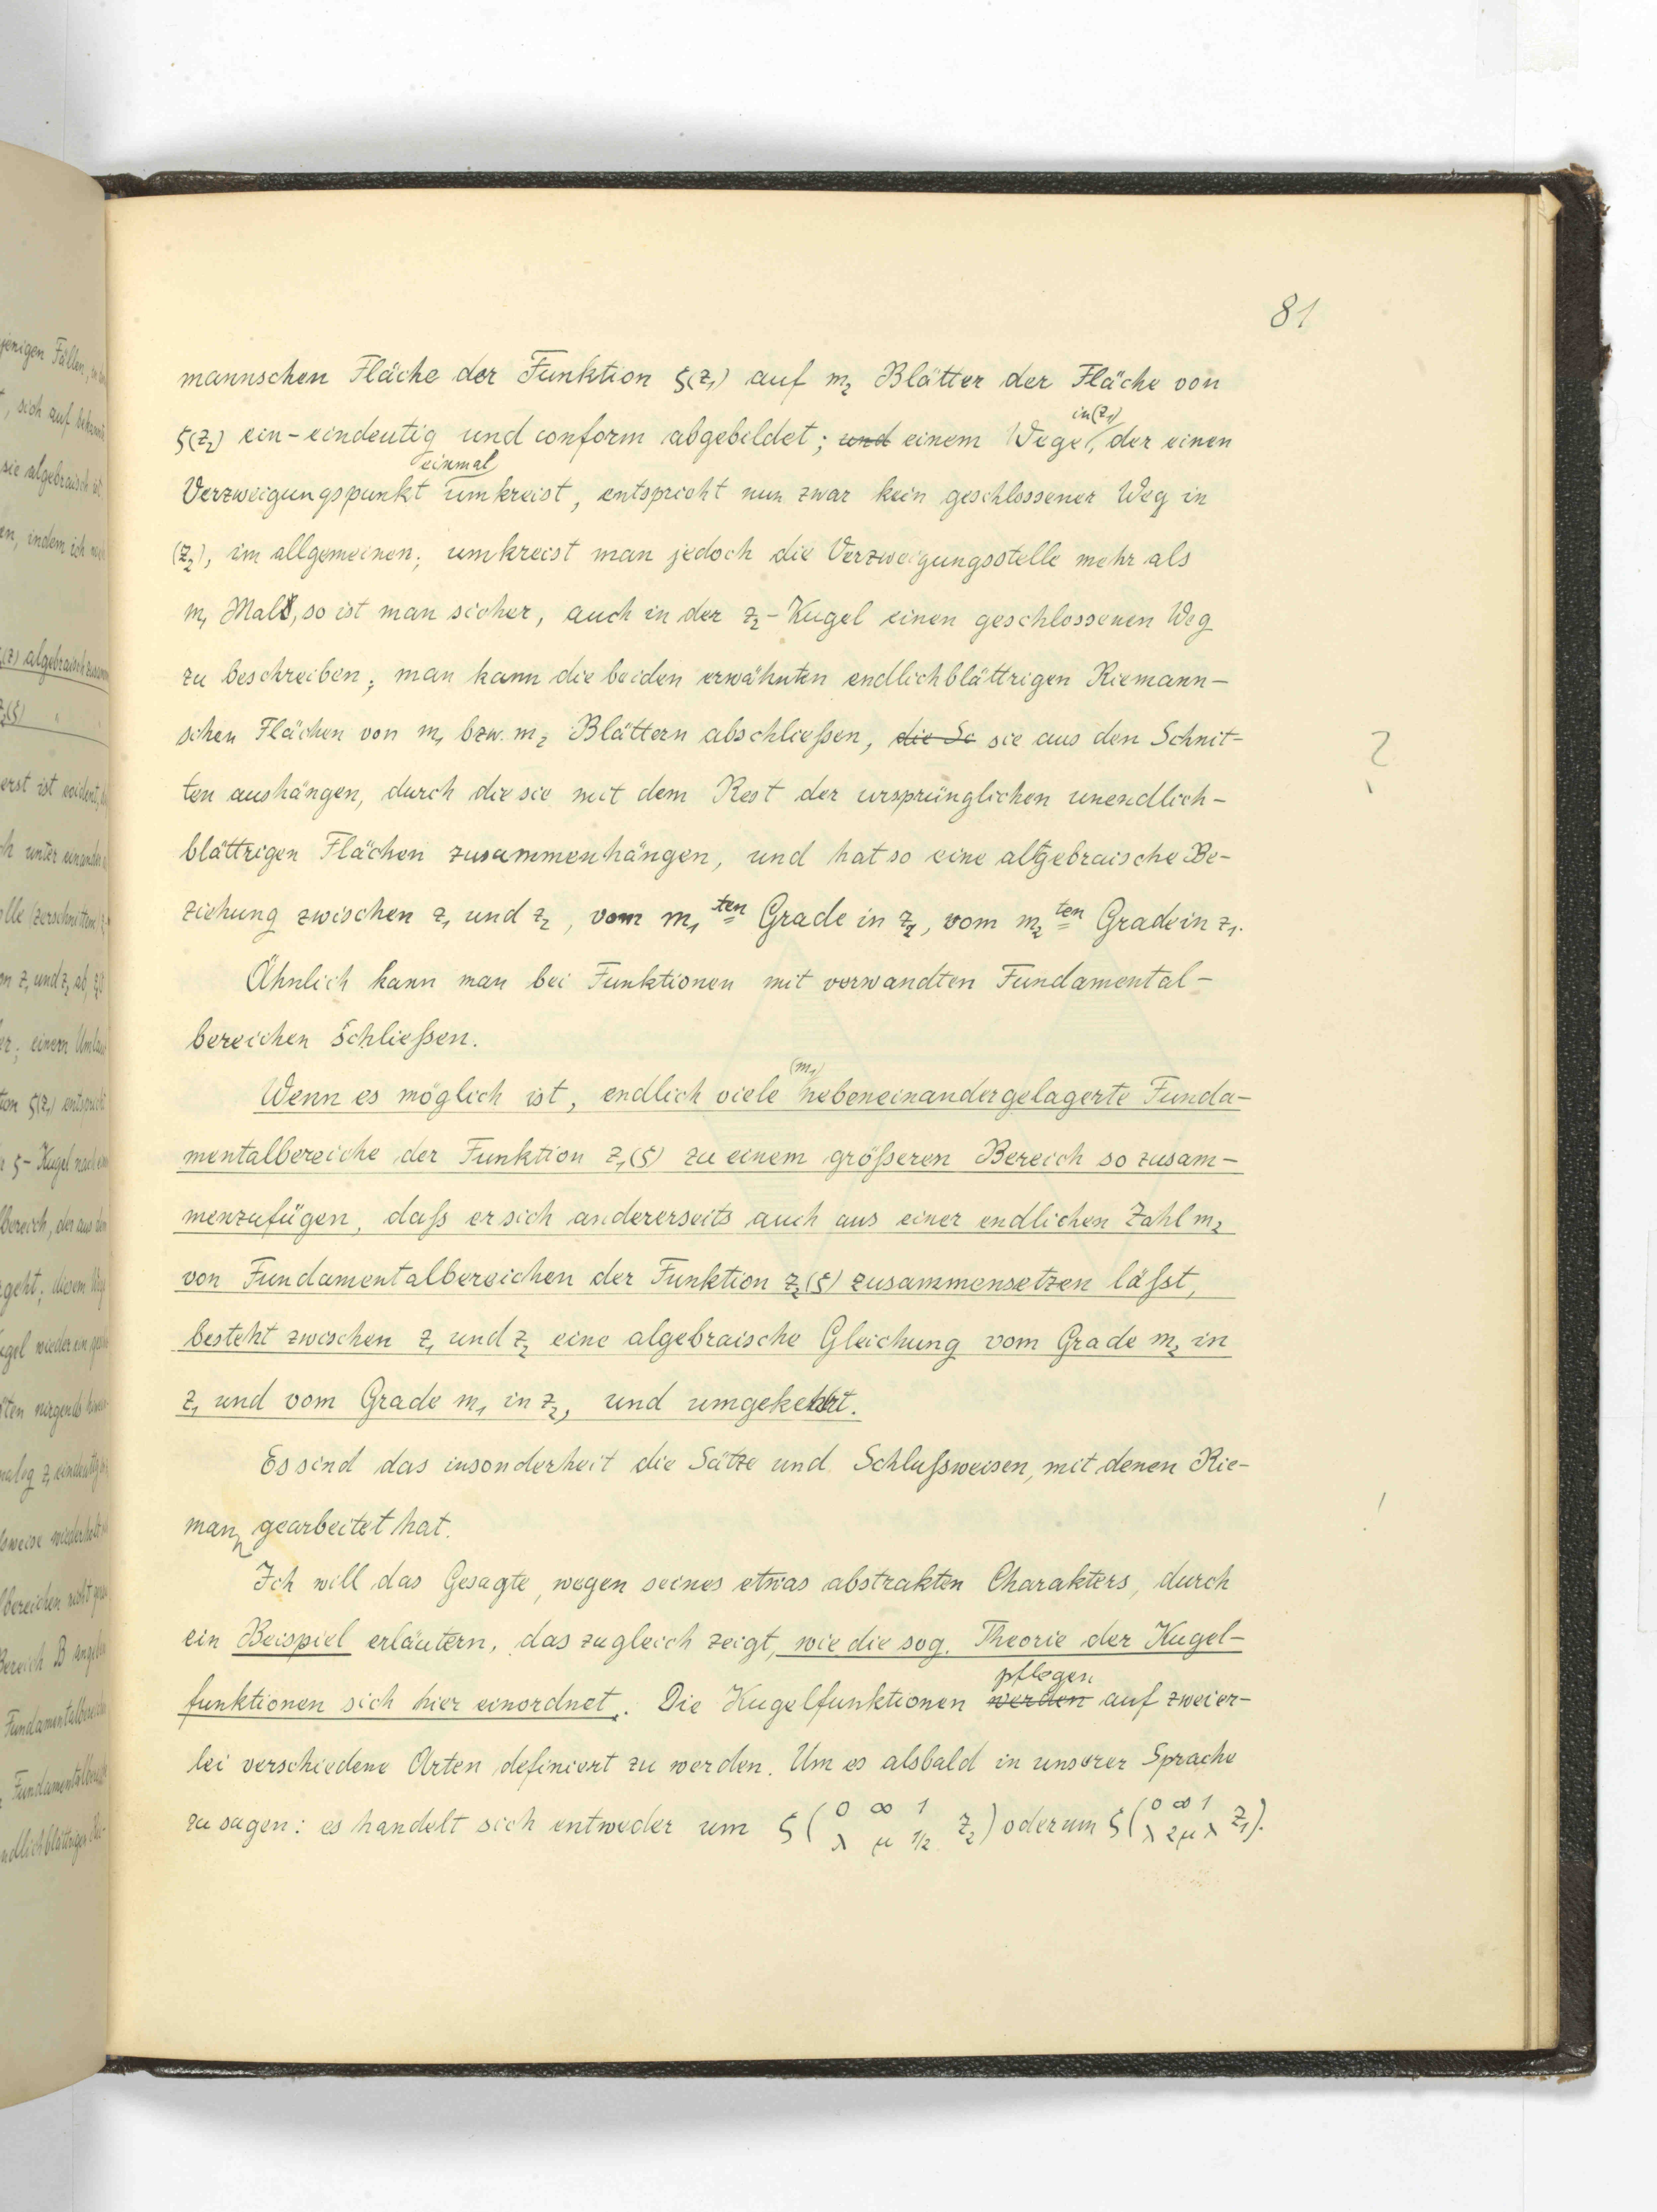 81
mannschen Fläche der Funktion ζ(z₁) auf m₂ Blätter der Fläche von
in (z₁)
ζ(z₂) ein-eindeutig und conform abgebildet; und einem Wege, der einen
einmal
Verzweigungspunkt umkreist, entspricht nun zwar kein geschlossener Weg in
(z₂), im allgemeinen; umkreist man jedoch die Verzweigungsstelle mehr als
m₁ Mal, so ist man sicher, auch in der z₂-Kugel einen geschlossenen Weg
zu beschreiben; man kann die beiden erwähnten endlichblättrigen Riemann-
schen Flächen von m₁ bzw. m₂ Blättern abschließen, die Sc sie aus den Schnit-
?
ten aushängen, durch die sie mit dem Rest der ursprünglichen unendlich-
blättrigen Flächen zusammenhängen, und hat so eine algebraische Be-
ziehung zwischen z₁ und z₂, vom m₁ten Grade in z₂, vom m₂ten Grade in z₁.
Ähnlich kann man bei Funktionen mit verwandten Fundamental-
bereichen schließen.
(m₁)
Wenn es möglich ist, endlich viele nebeneinandergelagerte Funda-
mentalbereiche der Funktion z₁(ζ) zu einem größeren Bereich so zusam-
menzufügen, daß er sich andererseits auch aus einer endlichen Zahl m₂
von Fundamentalbereichen der Funktion z₂(ζ) zusammensetzen läßt,
besteht zwischen z₁ und z₂ eine algebraische Gleichung vom Grade m₂ in
z₁ und vom Grade m₁ in z₂, und umgekehrt.
Es sind das insonderheit die Sätze und Schlußweisen, mit denen Rie-
mann gearbeitet hat.
!
Ich will das Gesagte, wegen seines etwas abstrakten Charakters, durch
ein Beispiel erläutern, das zugleich zeigt, wie die sog. Theorie der Kugel-
pflegen
funktionen sich hier einordnet. Die Kugelfunktionen werden auf zweier-
lei verschiedene Arten definiert zu werden. Um es alsbald in unserer Sprache
zu sagen: es handelt sich entweder um ζ(0 ∞ 1 λ μ 1/2 z₂) oder um ζ(0 ∞ 1 λ 2μ λ z₁).